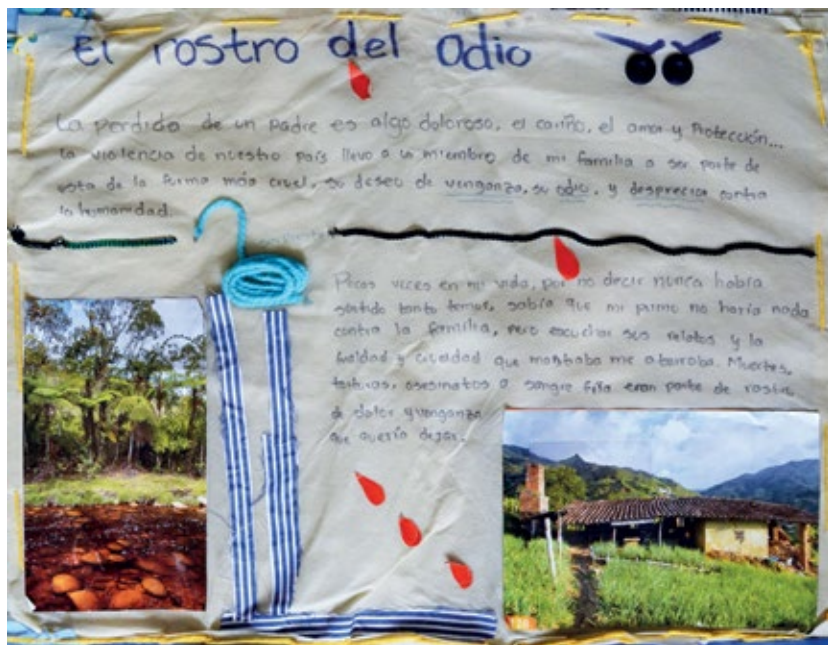 El rostro del Odio
La perdida de un padre es algo doloroso, el cariño, el amor y Protección...
la violencia de nuestro país llevo a un miembro de mi familia a ser parte de
esta de la forma más cruel, su deseo de venganza, su odio, y desprecio contra
la humanidad.
Pocas veces en mi vida, por no decir nunca había
sentido tanto temor, sabía que mi primo no haría nada
contra la familia, pero escuchar sus relatos y la
frialdad y crueldad que mostraba me aterraba. Muertes,
torturas, asesinatos a sangre fría eran parte de rastro
de dolor y venganza
que quería dejar.